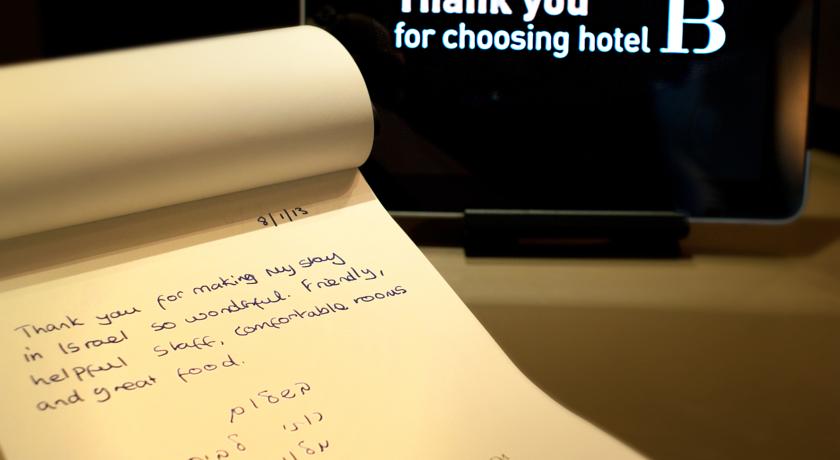 Thank you
for choosing hotel B
8/1/13
Thank you for making my stay
in Israel so wonderful. Friendly,
helpful staff, comfortable rooms
and great food.